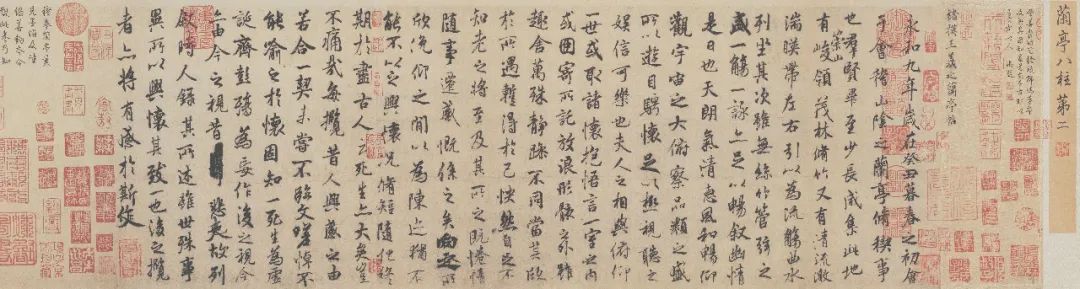 蘭亭八柱第二
褚模王羲之蘭亭帖
永和九年歲在癸丑暮春之初會
于會稽山陰之蘭亭脩稧事
也羣賢畢至少長咸集此地
崇山
有峻領茂林脩竹又有清流激
湍暎帶左右引以為流觴曲水
列坐其次雖無絲竹管弦之
盛一觴一詠亦足以暢叙幽情
是日也天朗氣清惠風和暢仰
觀宇宙之大俯察品類之盛
所以遊目騁懷足以極視聽之
娛信可樂也夫人之相與俯仰
一世或取諸懷抱悟言一室之內
或因寄所託放浪形骸之外雖
趣舍萬殊靜躁不同當其欣
於所遇暫得於己怏然自足不
知老之將至及其所之既惓情
隨事遷感慨係之矣向之所
欣俛仰之間以為陳迹猶不
能不以之興懷況脩短隨化終
期於盡古人云死生亦大矣豈
不痛哉每攬昔人興感之由
若合一契未嘗不臨文嗟悼不
能喻之於懷固知一死生為虛
誕齊彭殤為妄作後之視今
亦由今之視昔悲夫故列
敘時人錄其所述雖世殊事
異所以興懷其致一也後之攬
者亦將有感於斯文